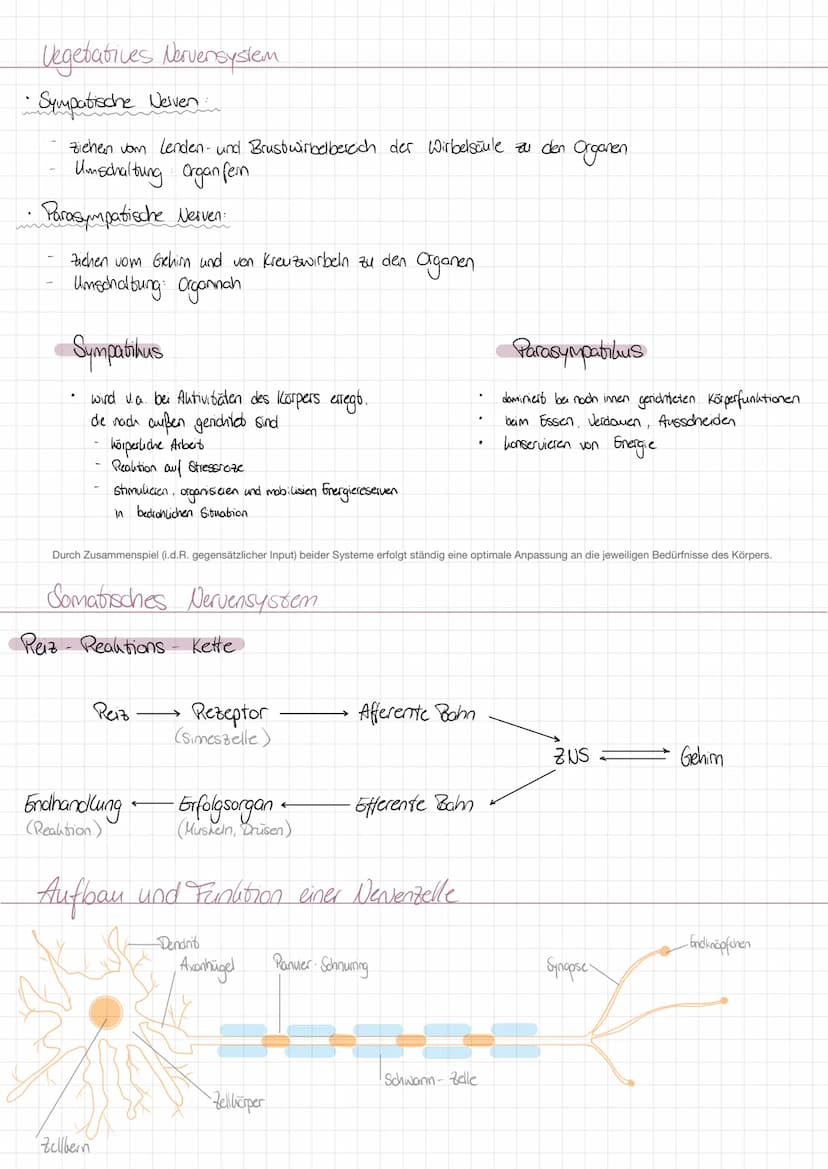 Vegetatives Nervensystem
· Sympatische Nerven:
- ziehen vom Lenden- und Brustwirbelbereich der Wirbelsäule zu den Organen
- Umschaltung: Organfern
· Parasympatische Nerven:
- ziehen vom Gehirn und von Kreuzwirbeln zu den Organen
- Umschaltung: Organnah
Sympatihus
• wird v.a. bei Aktivitäten des Körpers erregt,
die nach außen gerichtet sind
- körperliche Arbeit
- Reaktion auf Stressreize
- stimulieren, organisieren und mobilisien Energiereserven
in bedrohlichen Situation
Parasympatihus
• dominiert bei nach innen gerichteten Körperfunktionen
• beim Essen, Verdauen, Ausscheiden
• konservieren von Energie
Durch Zusammenspiel (i.d.R. gegensätzlicher Input) beider Systeme erfolgt ständig eine optimale Anpassung an die jeweiligen Bedürfnisse des Körpers.
Somatisches Nervensystem
Reiz - Reaktions - Kette
Reiz → Rezeptor → Afferente Bahn
(Sinneszelle)
ZNS ⇌ Gehirn
Endhandlung ← Erfolgsorgan ← Efferente Bahn
(Reaktion) (Muskeln, Drüsen)
Aufbau und Funktion einer Nervenzelle
Dendrit
Axonhügel
Ranvier-Schnürring
Synapse
Endknöpfchen
Schwann-Zelle
Zellkörper
Zellkern